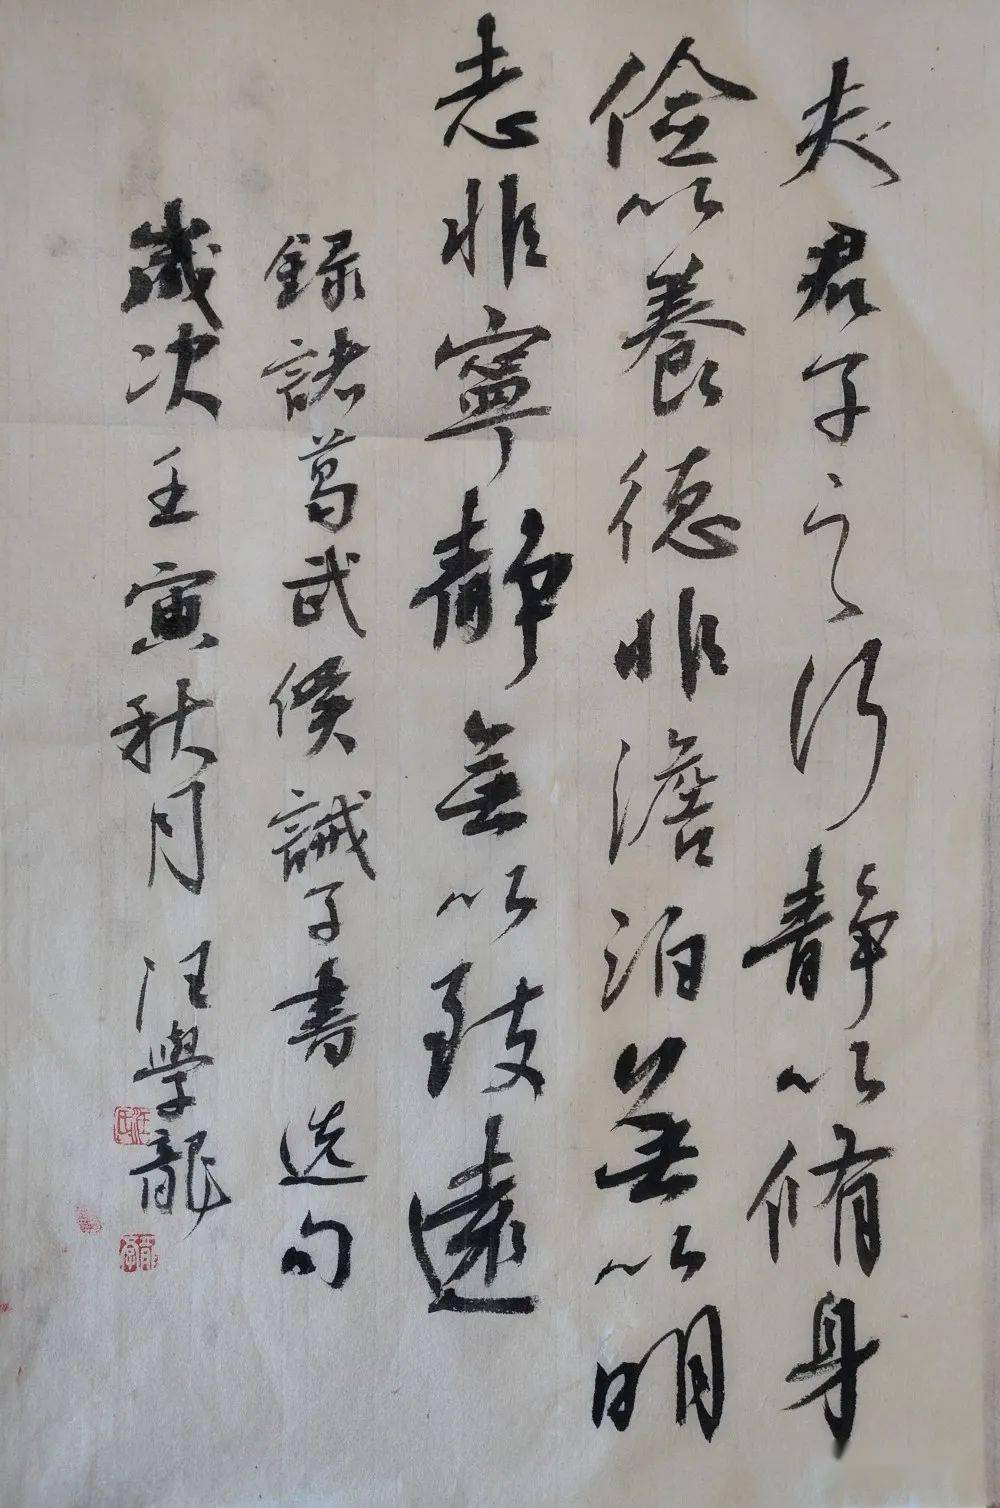 夫君子之行静以脩身
儉以養德非澹泊無以明
志非寧靜無以致遠
録諸葛武侯誡子書选句
歲次壬寅秋月 汪學龍